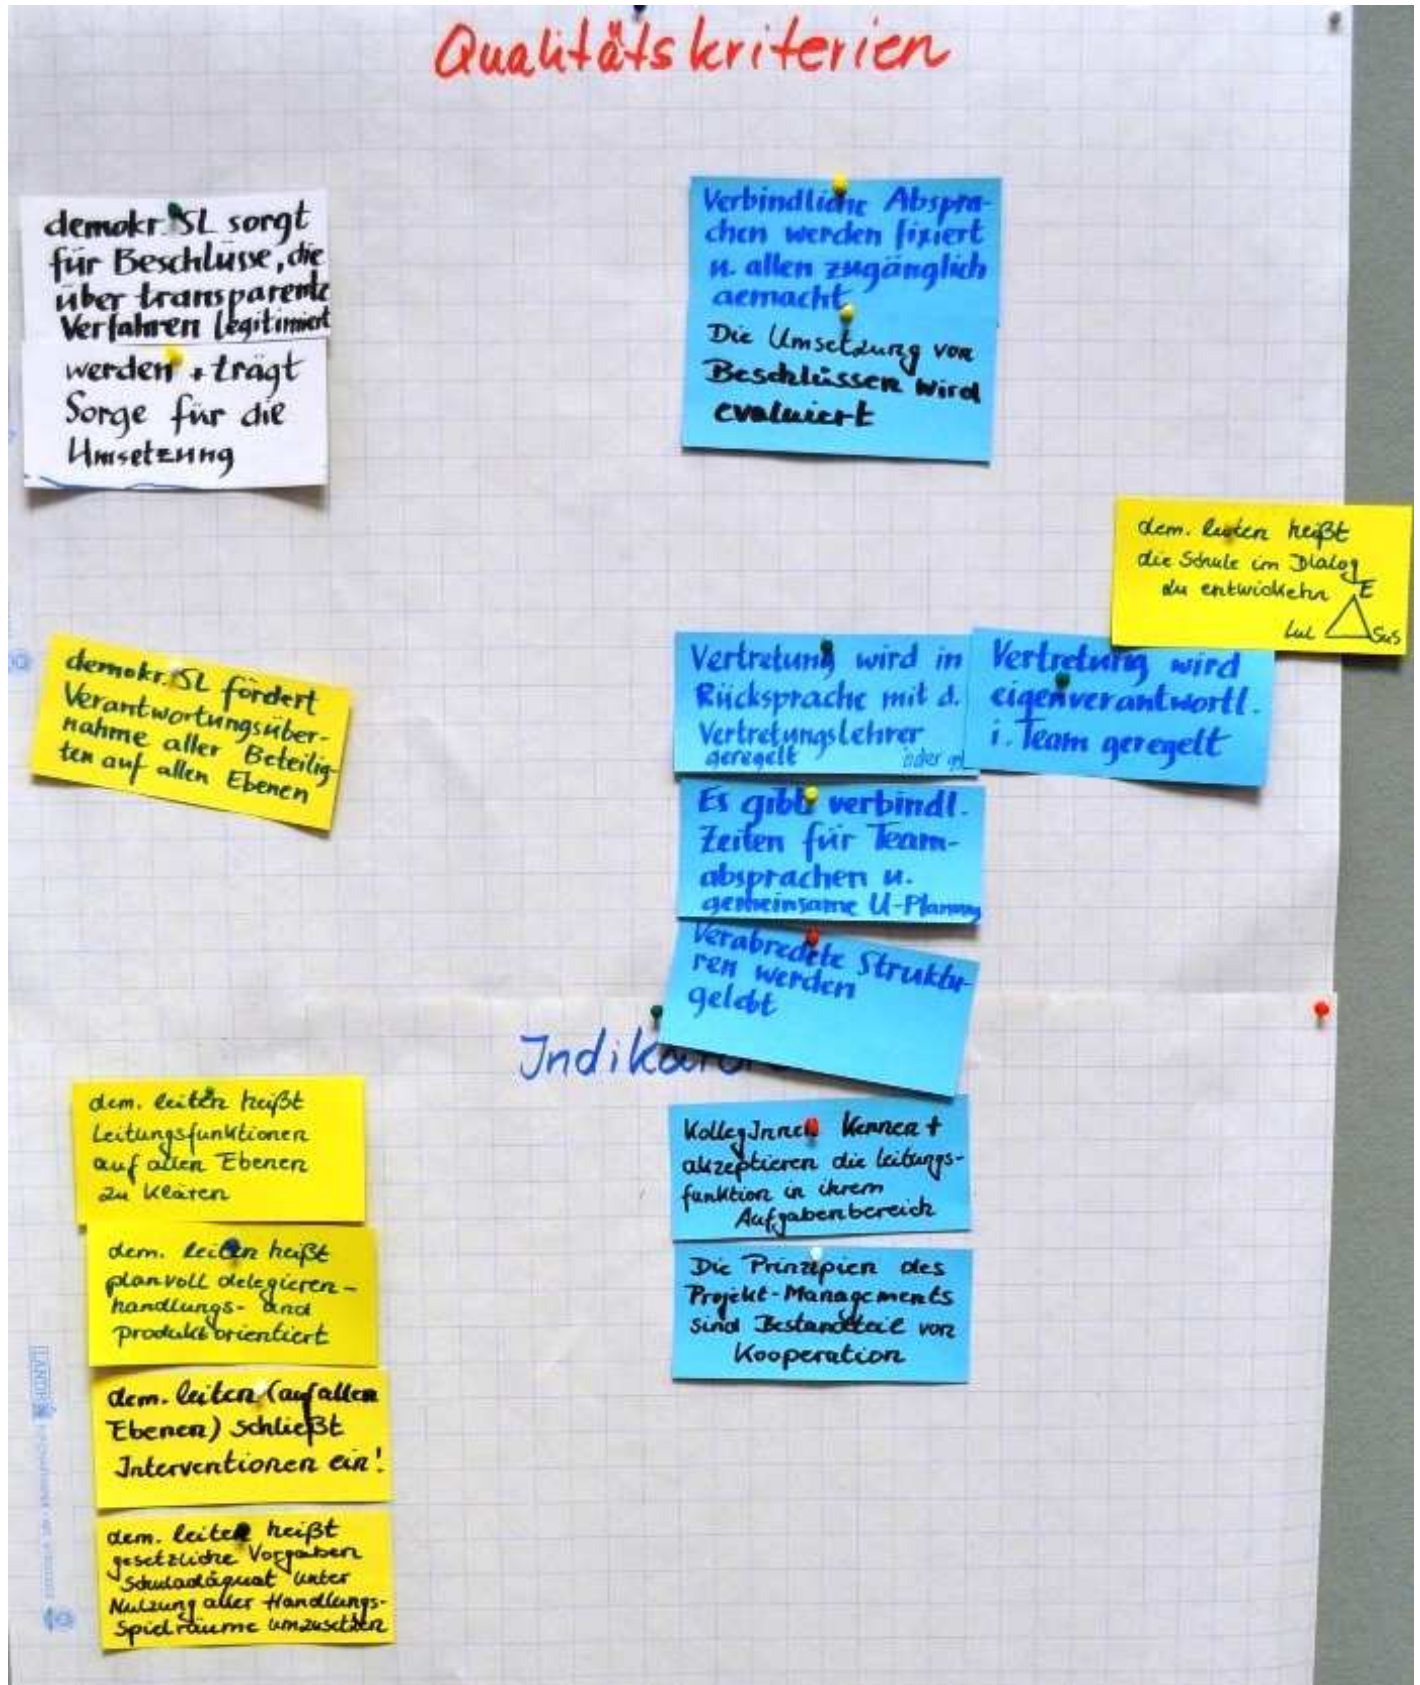 Qualitätskriterien
demokr. SL sorgt
für Beschlüsse, die
über transparente
Verfahren legitimiert
werden + trägt
Sorge für die
Umsetzung
Verbindliche Abspra-
chen werden fixiert
u. allen zugänglich
gemacht
Die Umsetzung von
Beschlüssen wird
evaluiert
dem. leiten heißt
die Schule im Dialog
zu entwickeln
E
LuL SuS
demokr. SL fördert
Verantwortungsüber-
nahme aller Beteilig-
ten auf allen Ebenen
Vertretung wird in
Rücksprache mit d.
Vertretungslehrer
geregelt oder
Vertretung wird
eigenverantwortl.
i. Team geregelt
Es gibt verbindl.
Zeiten für Team-
absprachen u.
gemeinsame U-Planung
Verabredete Struktu-
ren werden
gelebt
dem. leiten heißt
Leitungsfunktionen
auf allen Ebenen
zu klären
dem. leiten heißt
planvoll delegieren -
handlungs- und
produktorientiert
dem. leiten (auf allen
Ebenen) schließt
Interventionen ein!
dem. leiten heißt
gesetzliche Vorgaben
Schuladäquat unter
Nutzung aller Handlungs-
Spielräume umzusetzen
KollegInnen kennen +
akzeptieren die Leitungs-
funktion in ihrem
Aufgabenbereich
Die Prinzipien des
Projekt-Managements
sind Bestandteil von
Kooperation